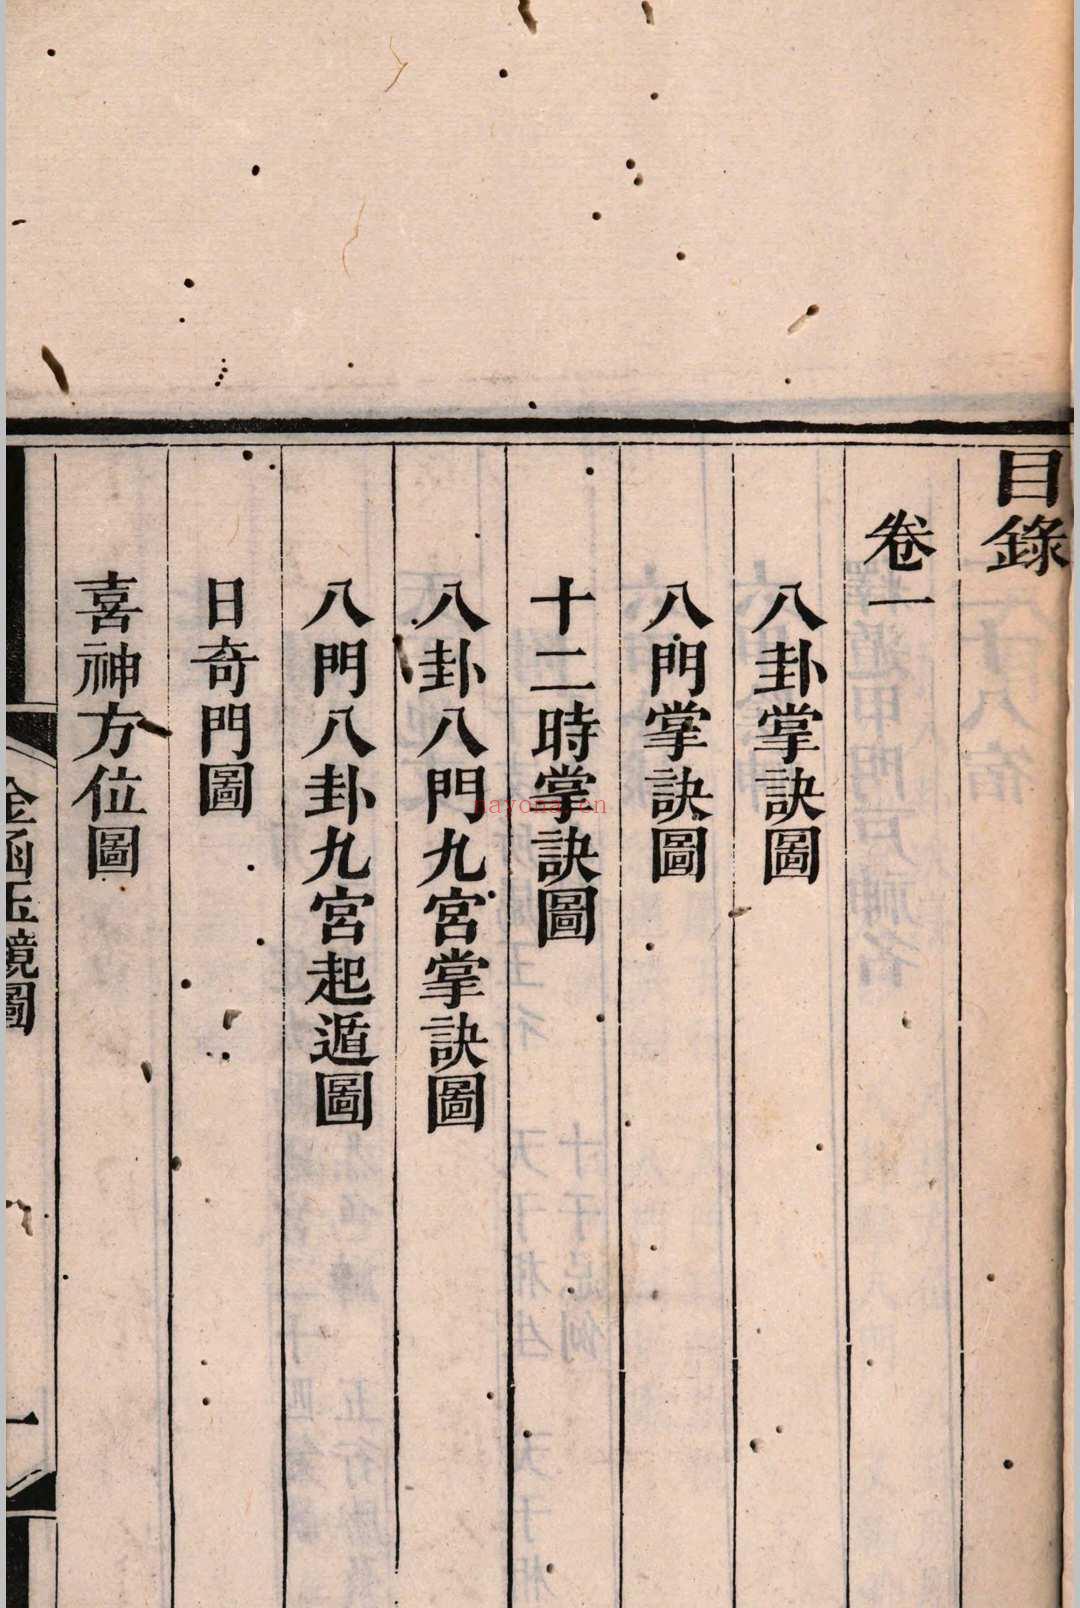 目錄
卷一
八卦掌訣圖
八門掌訣圖
十二時掌訣圖
八卦八門九宮掌訣圖
八門八卦九宮起遁圖
日奇門圖
喜神方位圖
金函玉鏡圖
一
nayona.cn